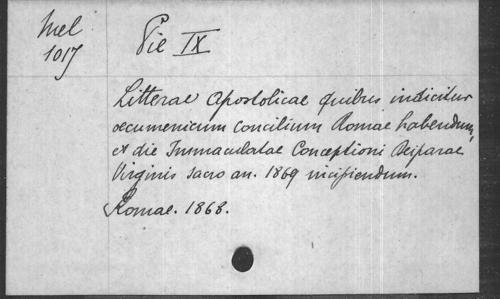 Mel
1017
Pie IX
Litterae Apostolicae quibus indicitur
oecumenicum concilium Romae habendum,
et die Immaculatae Conceptioni Deiparae
Virginis sacro an. 1869 incipiendum.
Romae. 1868.